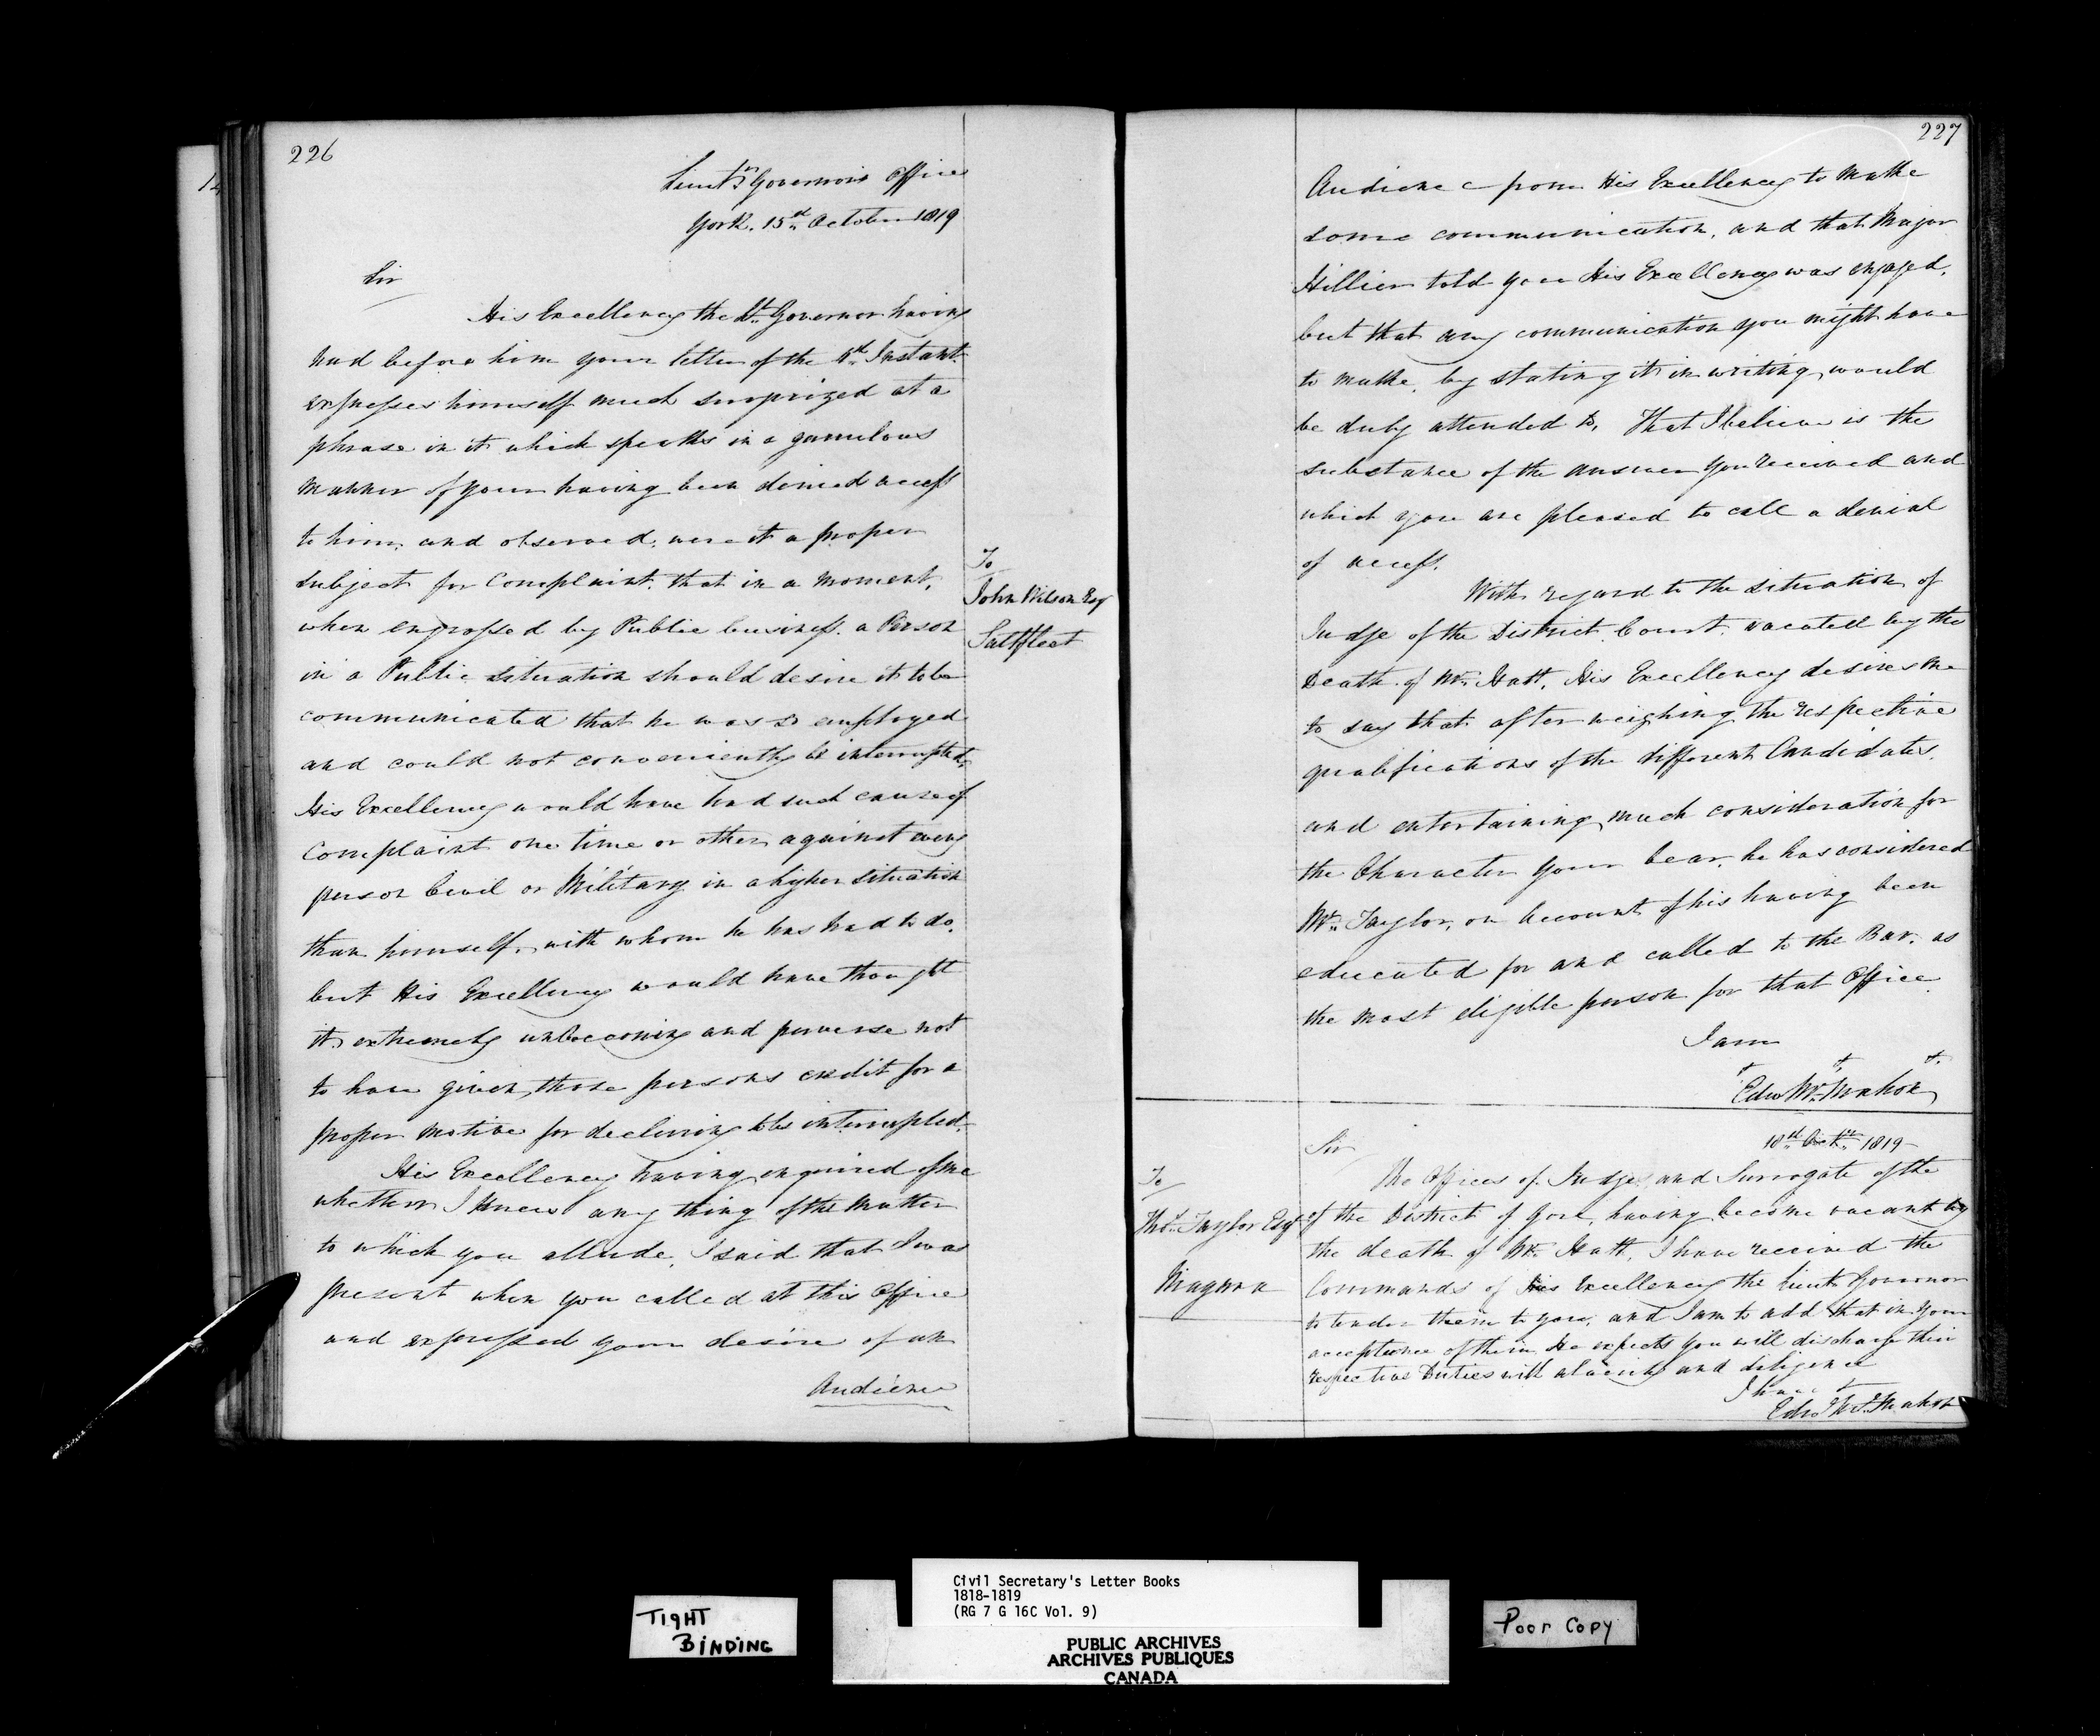 226
Lieut.t Governors Office
York. 15th October 1819
Sir
His Excellency the Lt. Governor having
had before him your letter of the Instant
expresses himself much surprized at a
phrase in it which speaks in a querulous
manner of your having been denied access
to him, and observed, were it a proper
subject for Complaint, that in a moment,
when engrossed by Public business, a Person
in a Public situation should desire it to be
communicated that he was so employed
and could not conveniently be interrupted,
His Excellency would have had such cause of
Complaint one time or other against every
person Civil or Military in a higher situation
than himself, with whom he has had to do,
but His Excellency would have thought
it extremely unbecoming and perverse not
to have given those persons credit for a
proper motive for declining to be interrupted.
His Excellency having enquired of me
whether I knew any thing of the matter
to which you allude, I said that I was
present when you called at this Office
and expressed your desire of an
Audience
To
John Wilson Esq
Saltfleet
227
Audience from His Excellency to make
some communication, and that Major
Hillier told you His Excellency was engaged,
but that any communication you might have
to make, by stating it in writing, would
be duly attended to, That I believe is the
substance of the answer you received and
which you are pleased to call a denial
of access.
With regard to the situation of
Judge of the District Court, vacated by the
Death of Mr. Hatt, His Excellency desires me
to say that after weighing the respective
qualifications of the different Candidates,
and entertaining much consideration for
the Character your bear, he has considered
Mr. Taylor, on account of his having been
educated for and called to the Bar, as
the most eligible person for that Office
I am
Edw McMahon
18th Octr. 1819
Sir
To
Thos. Taylor Esqr
Niagara
The Offices of Judge and Surrogate of the
of the District of Gore, having become vacant by
the death of Mr. Hatt, I have received the
Commands of His Excellency the Lieut. Governor
to tender them to you, and I am to add that in your
acceptance of them, He expects you will discharge their
respective Duties with alacrity and diligence
I have
Edw McMahon
TIGHT
BINDING
Civil Secretary's Letter Books
1818-1819
(RG 7 G 16C Vol. 9)
PUBLIC ARCHIVES
ARCHIVES PUBLIQUES
CANADA
Poor Copy